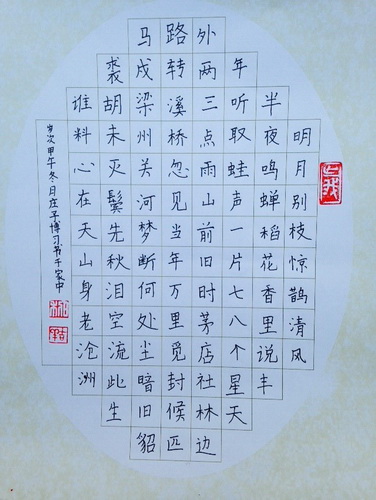 明月别枝惊鹊清风
半夜鸣蝉稻花香里说丰
年听取蛙声一片七八个星天
外两三点雨山前旧时茅店社林边
路转溪桥忽见当年万里觅封候匹
马戍梁州关河梦断何处尘暗旧貂
裘胡未灭鬓先秋泪空流此生
谁料心在天山身老沧洲
岁次甲午冬日庄子博习书于家中